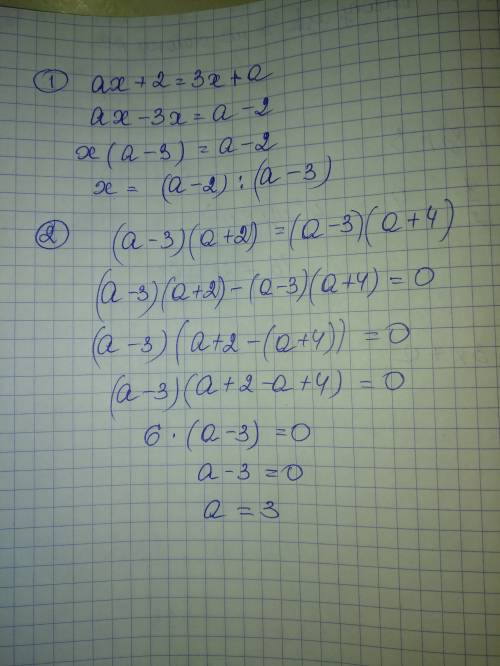 ① ax + 2 = 3x + a
ax - 3x = a - 2
x (a - 3) = a - 2
x = (a - 2) : (a - 3)
② (a - 3)(a + 2) = (a - 3)(a + 4)
(a - 3)(a + 2) - (a - 3)(a + 4) = 0
(a - 3)(a + 2 - (a + 4)) = 0
(a - 3)(a + 2 - a + 4) = 0
6 · (a - 3) = 0
a - 3 = 0
a = 3